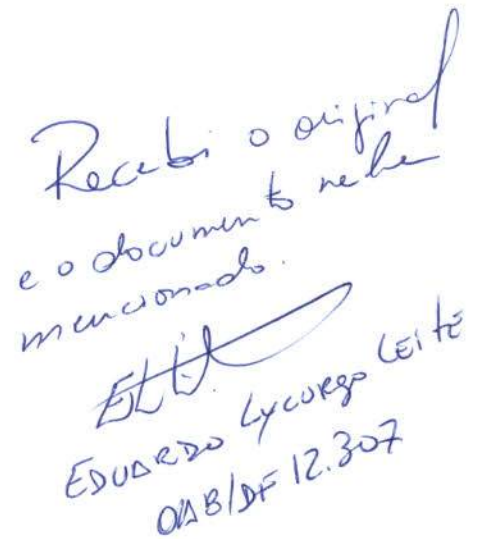 Recebi o original
e o documento nele
mencionado.
EDUARDO LYCURGO LEITE
OAB/DF 12.307